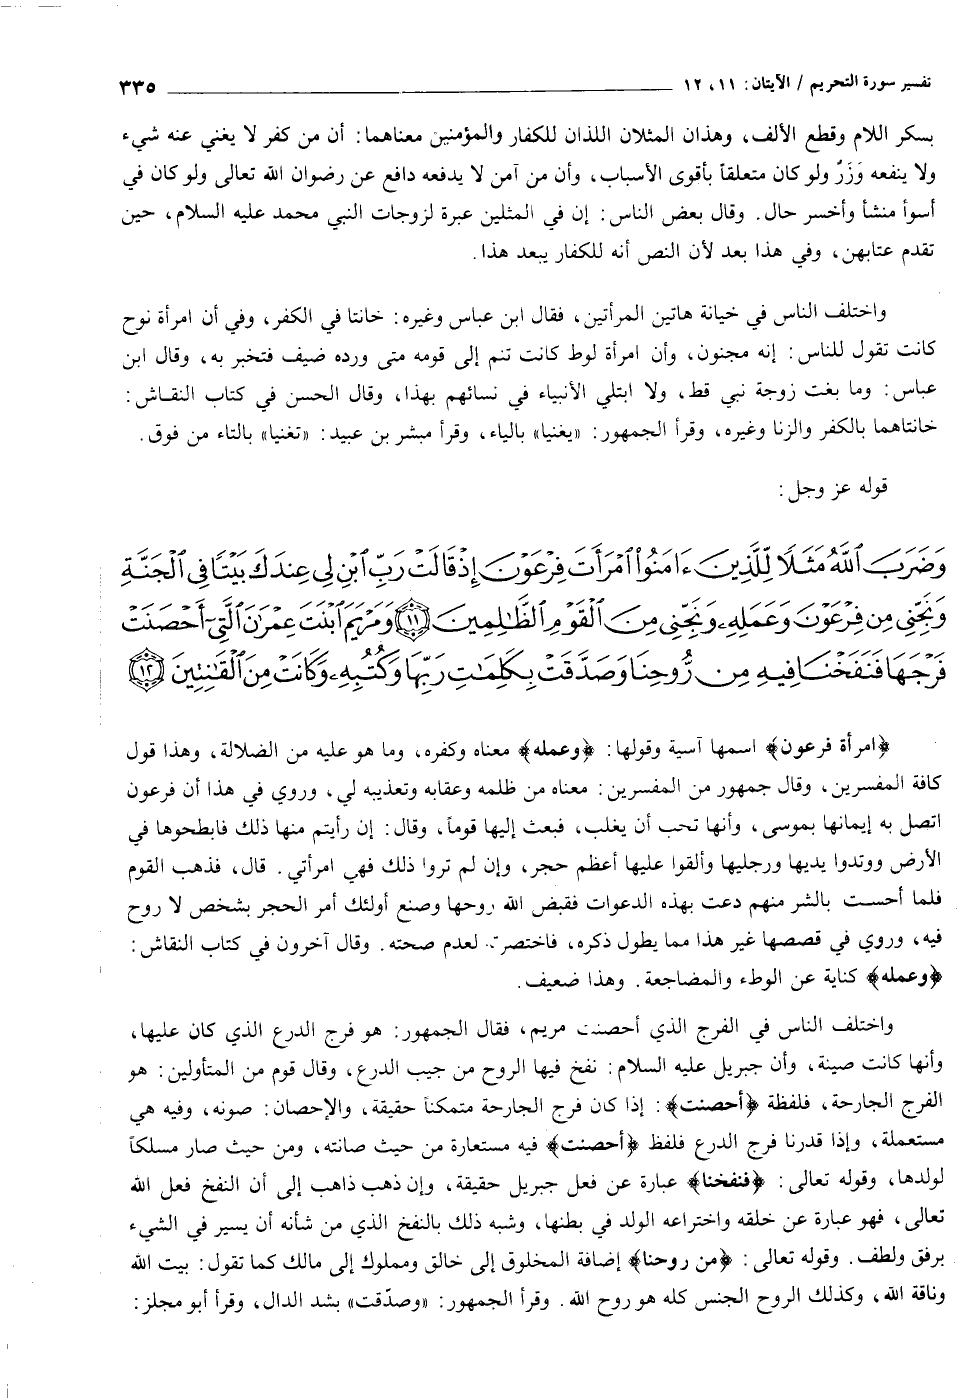 تفسير سورة التحريم / الآيتان: ١١، ١٢ ٣٣٥
بسكر اللام وقطع الألف، وهذان المثلان اللذان للكفار والمؤمنين معناهما: أن من كفر لا يغني عنه شيء
ولا ينفعه وَزَرٌ ولو كان متعلقاً بأقوى الأسباب، وأن من آمن لا يدفعه دافع عن رضوان الله تعالى ولو كان في
أسوأ منشأ وأخسر حال. وقال بعض الناس: إن في المثلين عبرة لزوجات النبي محمد عليه السلام، حين
تقدم عتابهن، وفي هذا بعد لأن النص أنه للكفار يبعد هذا.
واختلف الناس في خيانة هاتين المرأتين، فقال ابن عباس وغيره: خانتا في الكفر، وفي أن امرأة نوح
كانت تقول للناس: إنه مجنون، وأن امرأة لوط كانت تنم إلى قومه متى ورده ضيف فتخبر به، وقال ابن
عباس: وما بغت زوجة نبي قط، ولا ابتلي الأنبياء في نسائهم بهذا، وقال الحسن في كتاب النقاش:
خانتاهما بالكفر والزنا وغيره، وقرأ الجمهور: «يغنيا» بالياء، وقرأ مبشر بن عبيد: «تغنيا» بالتاء من فوق.
قوله عز وجل:
وَضَرَبَ ٱللَّهُ مَثَلًا لِّلَّذِينَ ءَامَنُواْ ٱمْرَأَتَ فِرْعَوْنَ إِذْ قَالَتْ رَبِّ ٱبْنِ لِي عِندَكَ بَيْتًا فِي ٱلْجَنَّةِ
وَنَجِّنِي مِن فِرْعَوْنَ وَعَمَلِهِۦ وَنَجِّنِي مِنَ ٱلْقَوْمِ ٱلظَّالِمِينَ ﴿١١﴾ وَمَرْيَمَ ٱبْنَتَ عِمْرَانَ ٱلَّتِيٓ أَحْصَنَتْ
فَرْجَهَا فَنَفَخْنَا فِيهِ مِن رُّوحِنَا وَصَدَّقَتْ بِكَلِمَاتِ رَبِّهَا وَكُتُبِهِۦ وَكَانَتْ مِنَ ٱلْقَانِتِينَ ﴿١٢﴾
﴿امرأة فرعون﴾ اسمها آسية وقولها: ﴿وعمله﴾ معناه وكفره، وما هو عليه من الضلالة، وهذا قول
كافة المفسرين، وقال جمهور من المفسرين: معناه من ظلمه وعقابه وتعذيبه لي، وروي في هذا أن فرعون
اتصل به إيمانها بموسى، وأنها تحب أن يغلب، فبعث إليها قوماً، وقال: إن رأيتم منها ذلك فابطحوها في
الأرض ووتدوا يديها ورجليها وألقوا عليها أعظم حجر، وإن لم تروا ذلك فهي امرأتي. قال، فذهب القوم
فلما أحست بالشر منهم دعت بهذه الدعوات فقبض الله روحها وصنع أولئك أمر الحجر بشخص لا روح
فيه، وروي في قصصها غير هذا مما يطول ذكره، فاختصرته لعدم صحته. وقال آخرون في كتاب النقاش:
﴿وعمله﴾ كناية عن الوطء والمضاجعة. وهذا ضعيف.
واختلف الناس في الفرج الذي أحصنت مريم، فقال الجمهور: هو فرج الدرع الذي كان عليها،
وأنها كانت صينة، وأن جبريل عليه السلام: نفخ فيها الروح من جيب الدرع، وقال قوم من المتأولين: هو
الفرج الجارحة، فلفظة ﴿أحصنت﴾: إذا كان فرج الجارحة متمكناً حقيقة، والإحصان: صونه، وفيه هي
مستعملة، وإذا قدرنا فرج الدرع فلفظ ﴿أحصنت﴾ فيه مستعارة من حيث صانته، ومن حيث صار مسلكاً
لولدها، وقوله تعالى: ﴿فنفخنا﴾ عبارة عن فعل جبريل حقيقة، وإن ذهب ذاهب إلى أن النفخ فعل الله
تعالى، فهو عبارة عن خلقه واختراعه الولد في بطنها، وشبه ذلك بالنفخ الذي من شأنه أن يسير في الشيء
برفق ولطف. وقوله تعالى: ﴿من روحنا﴾ إضافة المخلوق إلى خالق ومملوك إلى مالك كما تقول: بيت الله
وناقة الله، وكذلك الروح الجنس كله هو روح الله. وقرأ الجمهور: «وصدّقت» بشد الدال، وقرأ أبو مجلز: